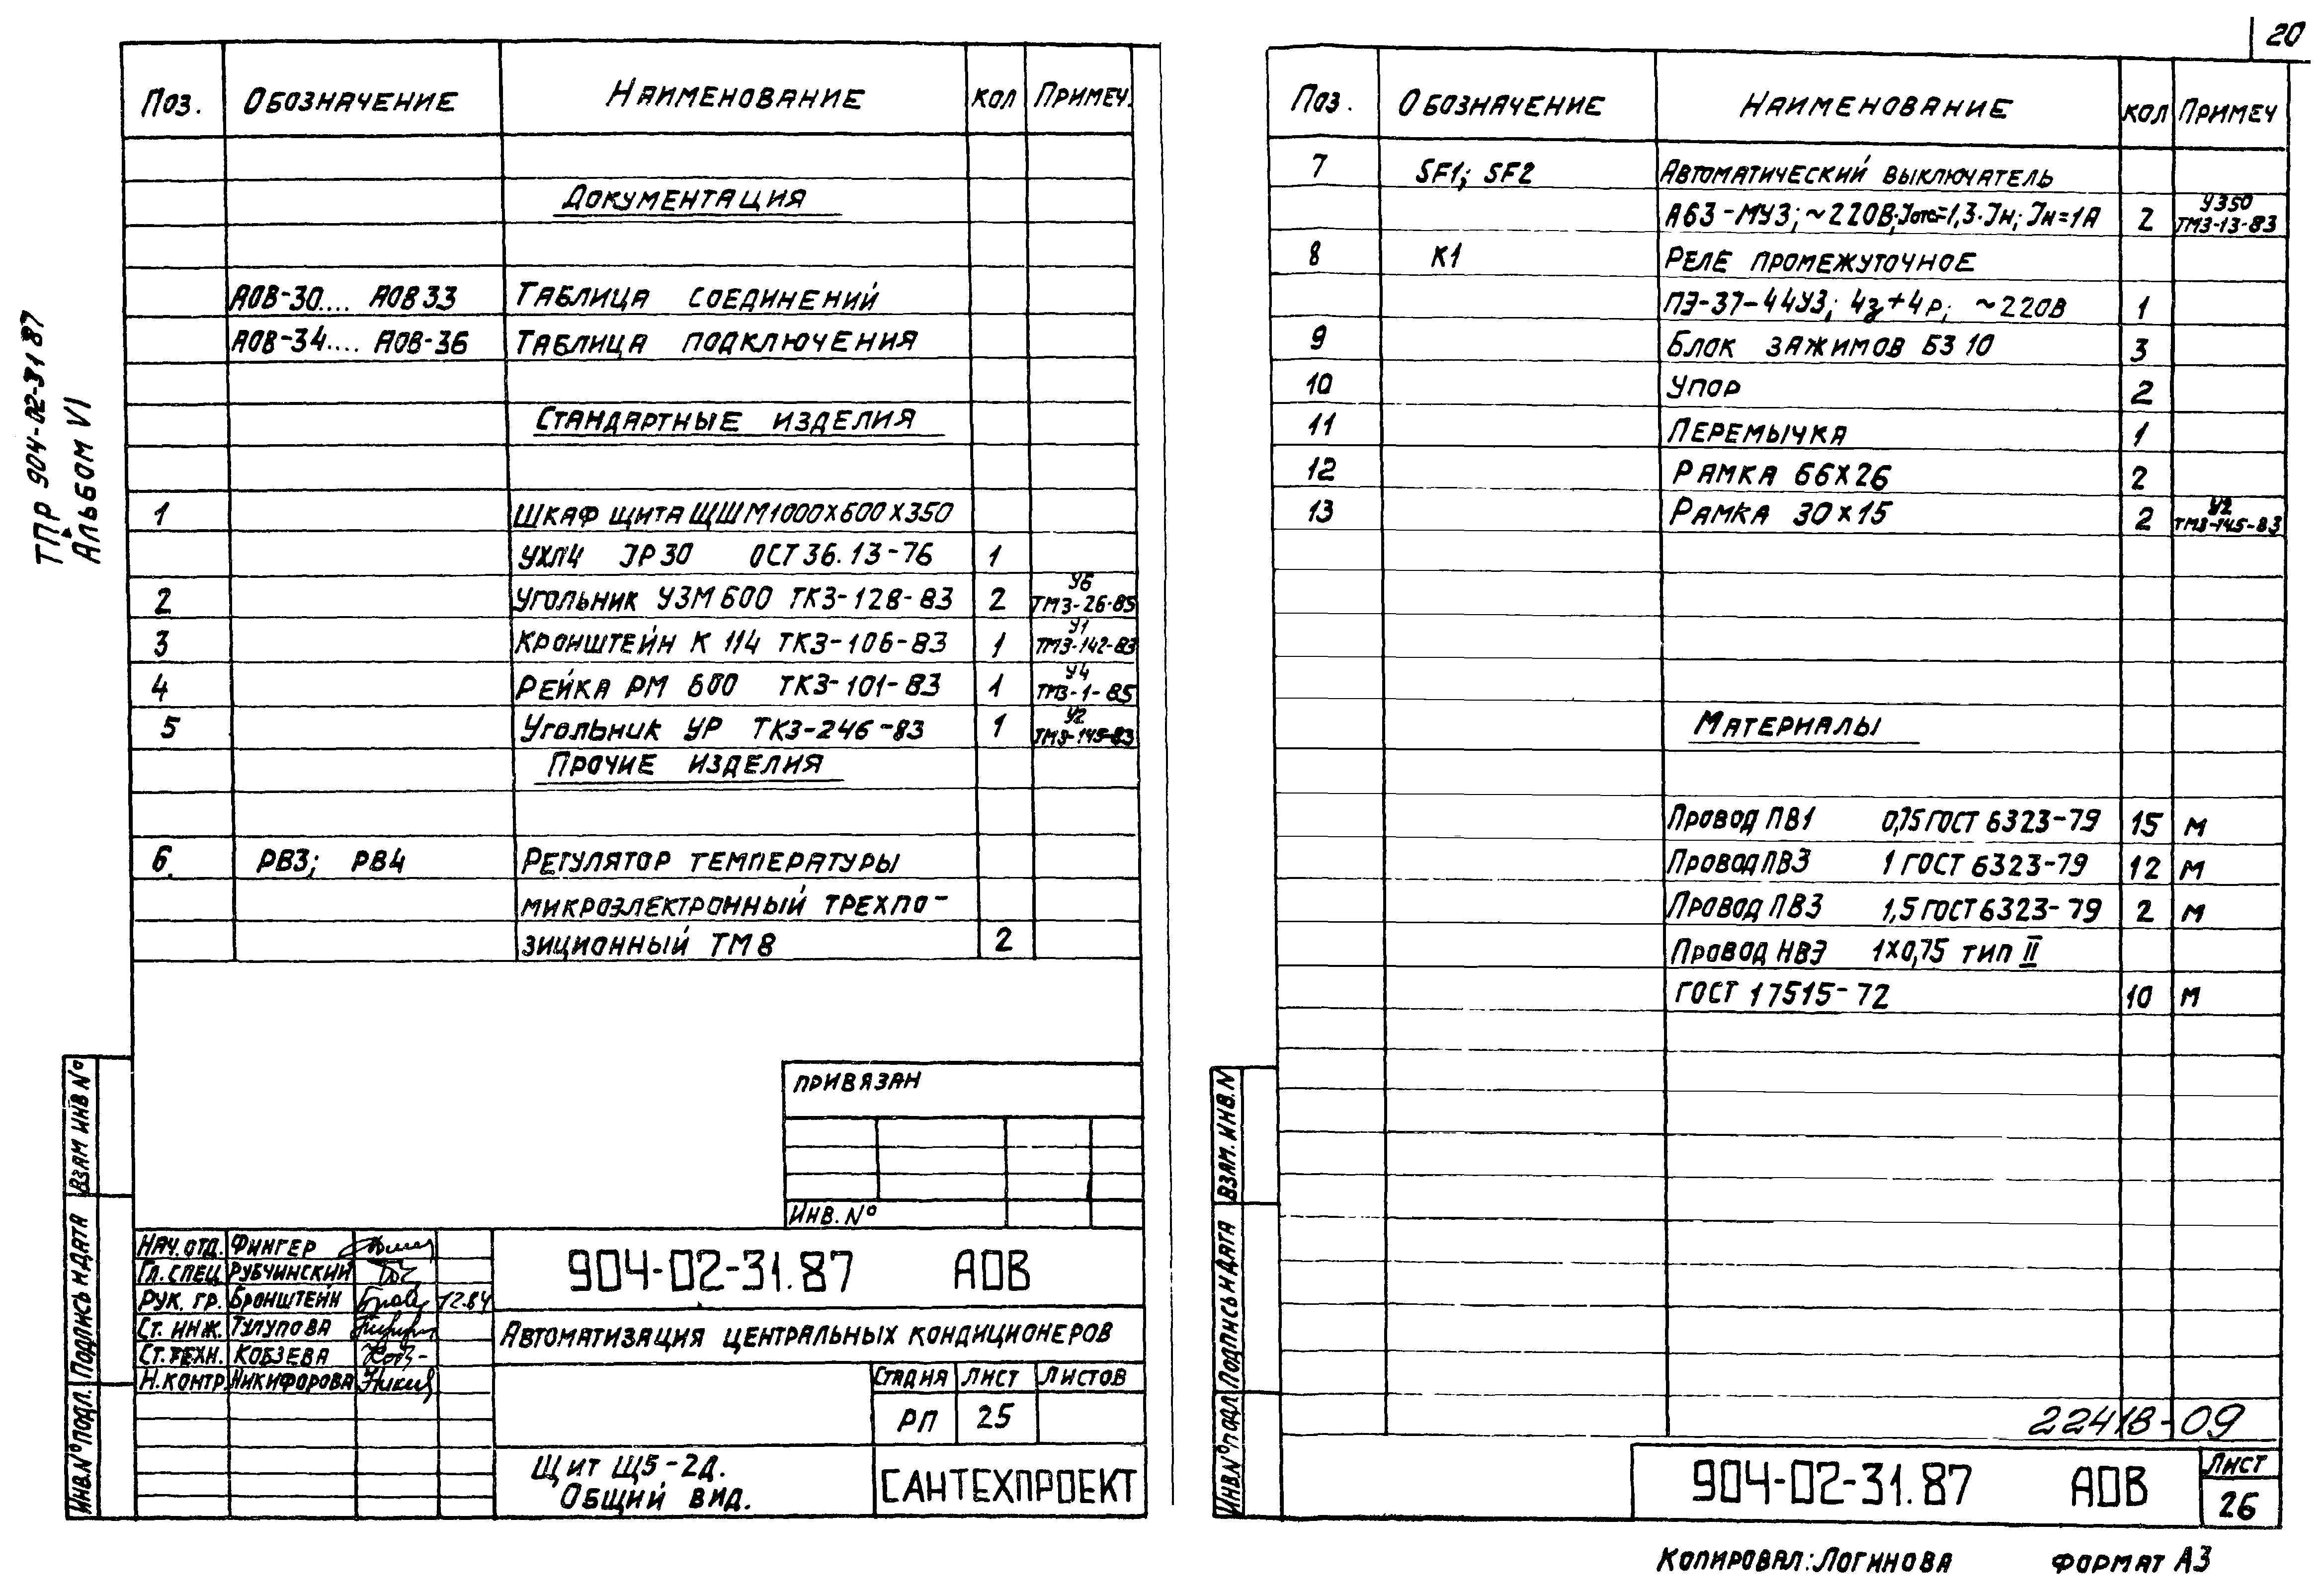 20
ТПР 904-02-31 87
Альбом VI
Поз. Обозначение Наименование Кол Примеч.
Документация
АОВ-30.... АОВ33 Таблица соединений
АОВ-34.... АОВ-36 Таблица подключения
Стандартные изделия
1 Шкаф щита ЩШМ1000х600х350
УХЛ4 IP30 ОСТ 36.13-76 1
2 Угольник УЗМ 600 ТК3-128-83 2 У6 ТМ3-26-85
3 Кронштейн К 114 ТК3-106-83 1 У1 ТМ3-142-83
4 Рейка РМ 600 ТК3-101-83 1 У4 ТМ3-1-85
5 Угольник УР ТК3-246-83 1 У2 ТМ3-145-83
Прочие изделия
6. РВ3; РВ4 Регулятор температуры
микроэлектронный трехпо-
зиционный ТМ8 2
Привязан
Инв. №
Взам инв №
Подпись и дата
Инв.№ подл.
Нач. отд. Фингер
Гл. спец Рубчинский
Рук. гр. Бронштейн 12.84
Ст. инж. Тулупова
Ст. техн. Кобзева
Н. контр. Никифорова
904-02-31.87 АОВ
Автоматизация центральных кондиционеров
Стадия Лист Листов
РП 25
Щит Щ5-2Д.
Общий вид.
САНТЕХПРОЕКТ
Поз. Обозначение Наименование Кол Примеч
7 SF1; SF2 Автоматический выключатель
А63-МУ3; ~220В; Iотс=1,3·Iн; Iн=1А 2 У350 ТМ3-13-83
8 К1 Реле промежуточное
ПЭ-37-44У3; 4з+4р; ~220В 1
9 Блок зажимов БЗ 10 3
10 Упор 2
11 Перемычка 1
12 Рамка 66х26 2
13 Рамка 30х15 2 У2 ТМ3-145-83
Материалы
Провод ПВ1 0,75 ГОСТ 6323-79 15 м
Провод ПВ3 1 ГОСТ 6323-79 12 м
Провод ПВ3 1,5 ГОСТ 6323-79 2 м
Провод НВЭ 1х0,75 тип II
ГОСТ 17515-72 10 м
Взам. инв. N
Подпись и дата
Инв.№ подл
22418-09
904-02-31.87 АОВ
Лист
26
Копировал: Логинова Формат А3